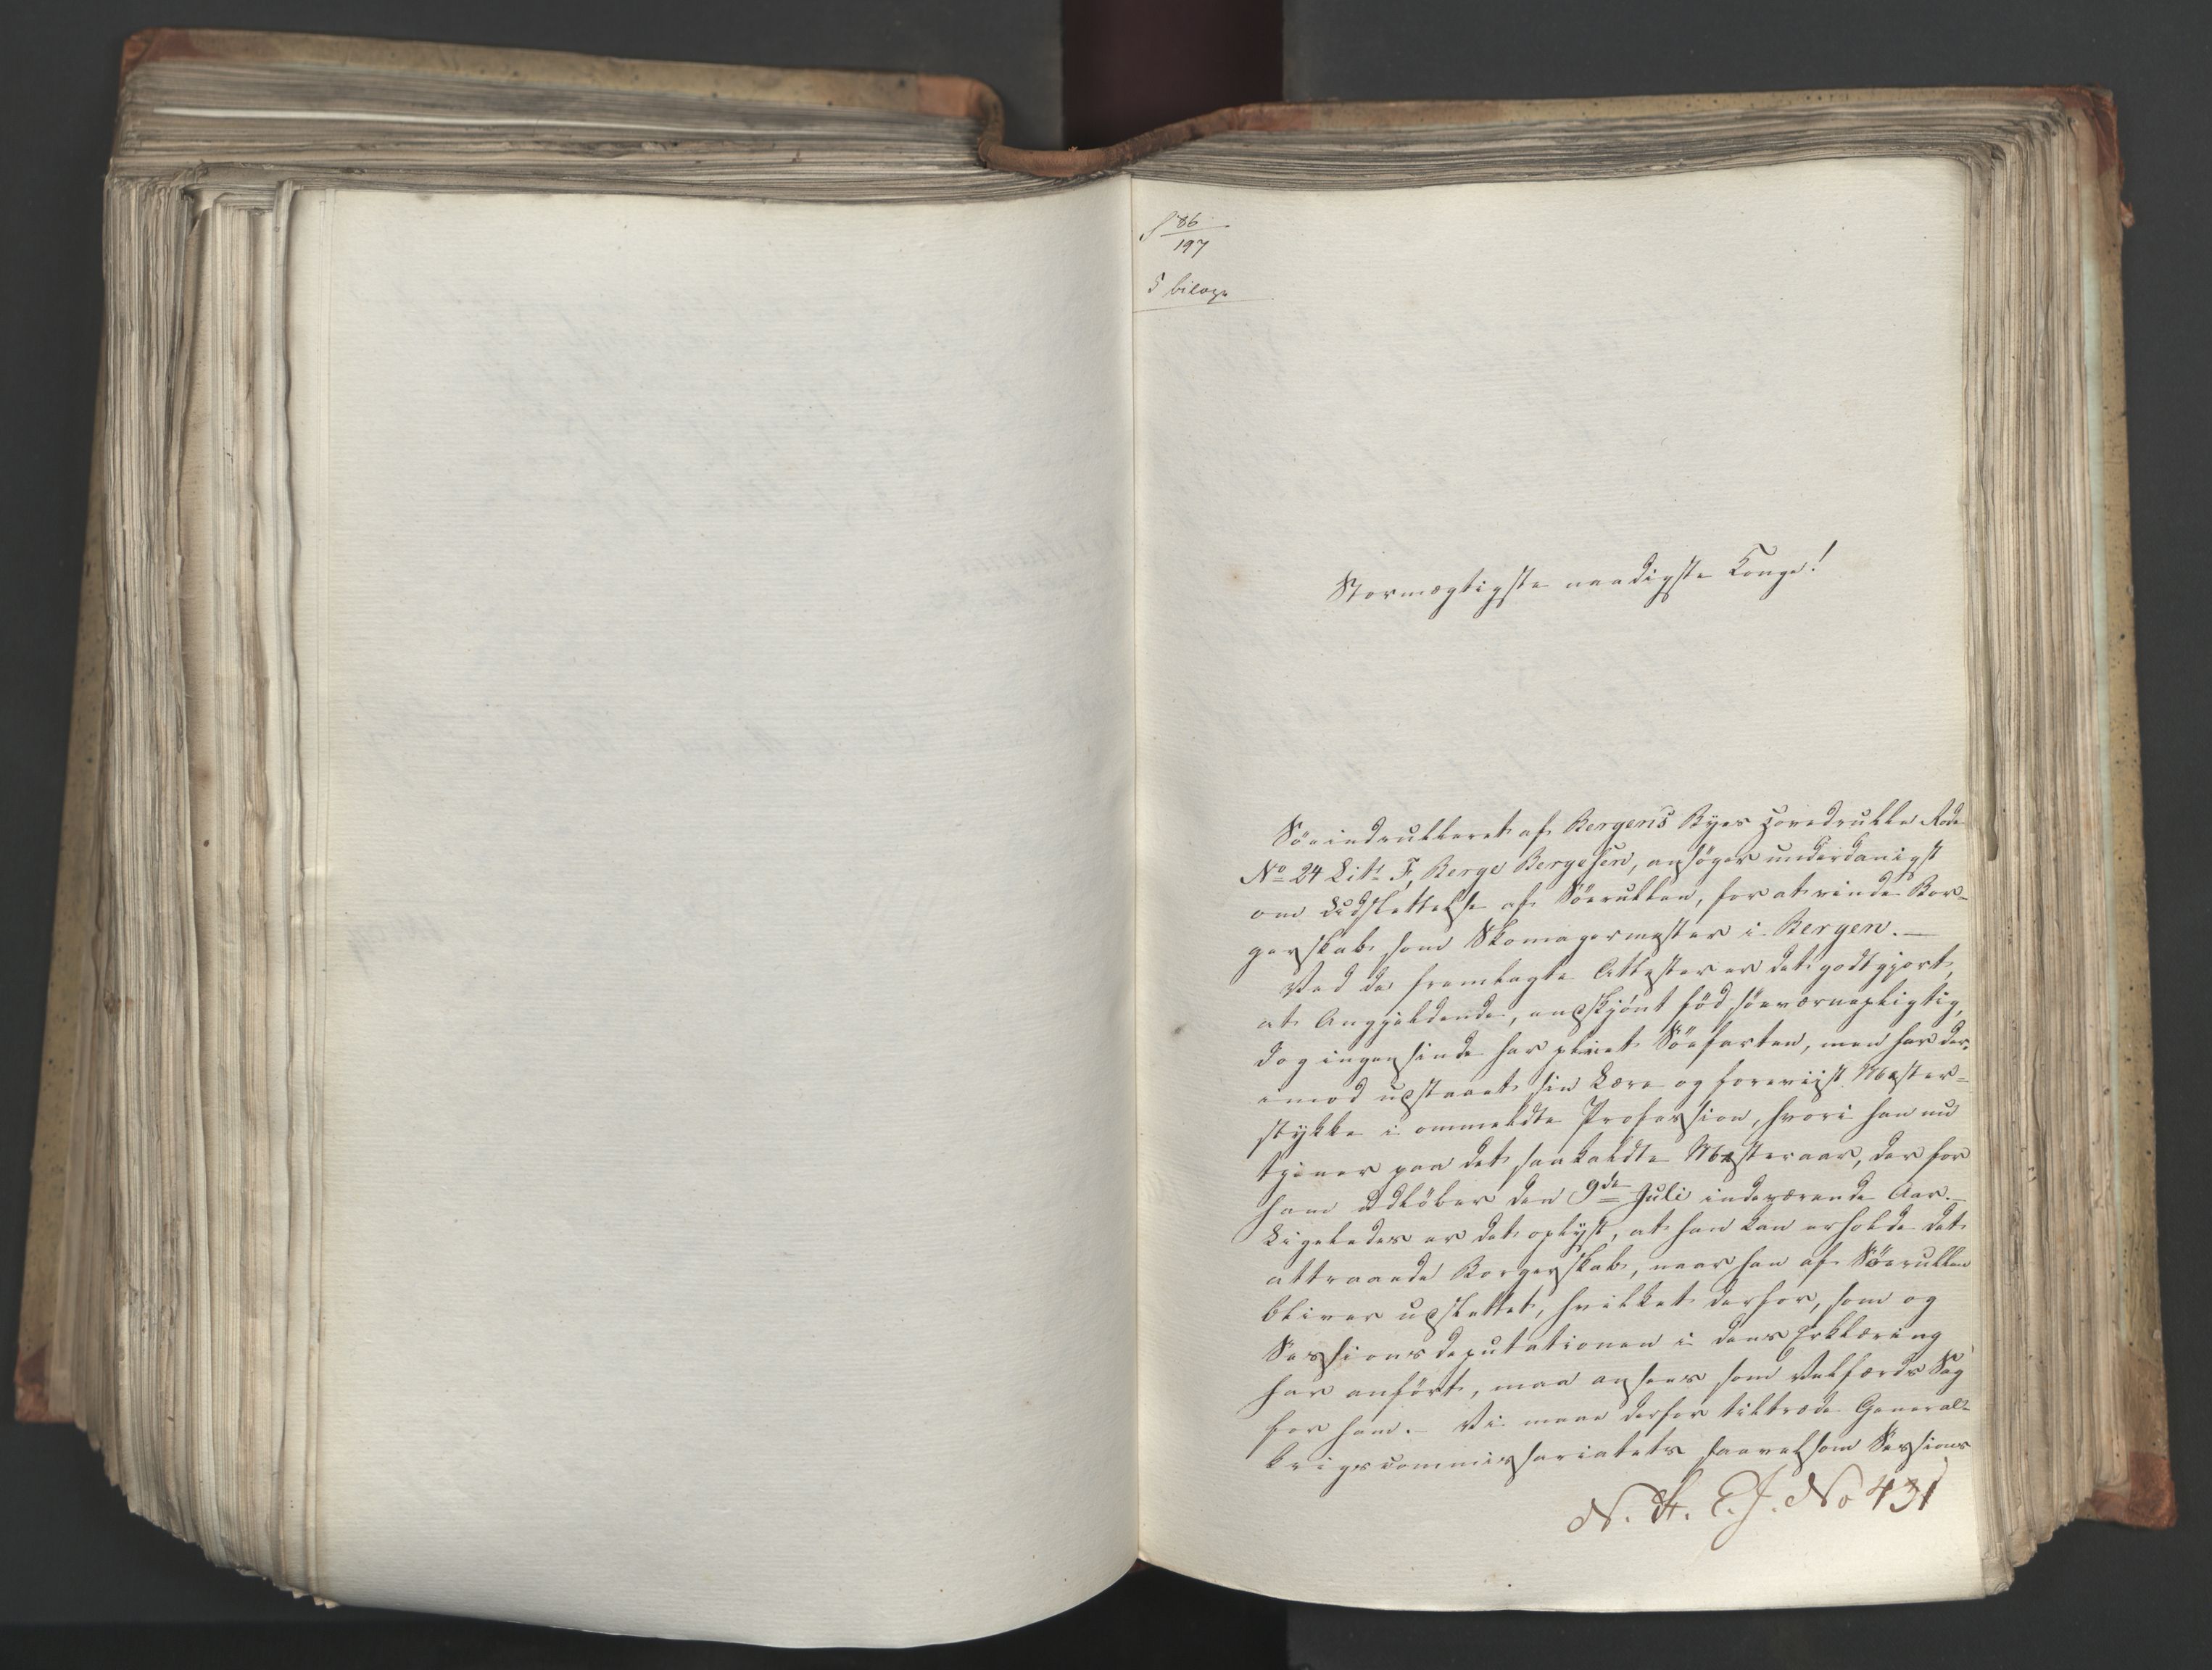 86
197
5 bilage
Stormægtigste naadigste Konge!
Söeindrulleret af Bergens Byes Hovedrulle Rode
No 24 Litr F, Berge Bergesen, ansöger underdanigst
om Udslettelse af Söerullen, for at vinde Bor-
gerskab som Skomagermester i Bergen. —
Ved de fremlagte Attester er det godtgjort,
at Angjeldende, enskjönt föd söeværnepligtig,
dog ingensinde har pleiet Söefarten, men har der-
imod udstaaet sin Lære og foreviist Mester-
stykke i ommeldte Profession, hvori han nu
tjener paa det saakaldte Mesteraar, der for
ham udlöber den 9de Juli indeværende Aar. —
Ligeledes er det oplyst, at han kan erholde det
attraaede Borgerskab, naar han af Söerullen
bliver udslettet, hvilket derfor, som og
Sessionsdeputationen i dens Erklæring
har anfört, maa ansees som Velfærds Sag
for ham. — Vi maae derfor tiltræde General-
krigscommissariatets saavelsom Sessions
N. St. E. J. No 431